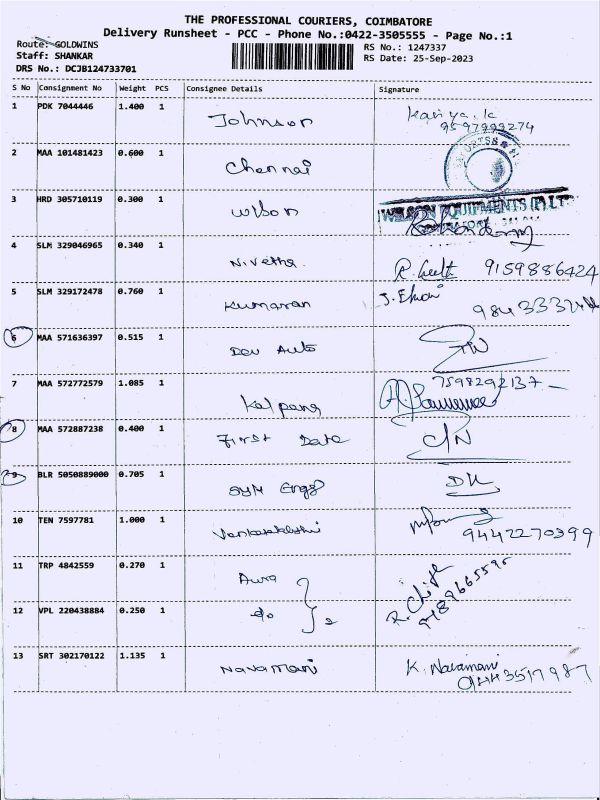 THE PROFESSIONAL COURIERS, COIMBATORE
Delivery Runsheet - PCC - Phone No.:0422-3505555 - Page No.:1
Route: GOLDWINS
RS No.: 1247337
Staff: SHANKAR
RS Date: 25-Sep-2023
DRS No.: DCJB124733701
S No Consignment No Weight PCS Consignee Details Signature
1 PDK 7044446 1.400 1 Johnson
2 MAA 101481423 0.600 1 Chennai
3 HRD 305710119 0.300 1 Wilson
4 SLM 329046965 0.340 1 Nivetha 9159886424
5 SLM 329172478 0.760 1 Kumaran
6 MAA 571636397 0.515 1 Dev Auto
7 MAA 572772579 1.085 1 Kalpana 7598292137
8 MAA 572887238 0.400 1 First Date C/N
9 BLR 5050889000 0.705 1 SYM Engg
10 TEN 7597781 1.000 1 9442270399
11 TRP 4842559 0.270 1 Aura
12 VPL 220438884 0.250 1 do } 2
13 SRT 302170122 1.135 1 Navamani K. Navamani